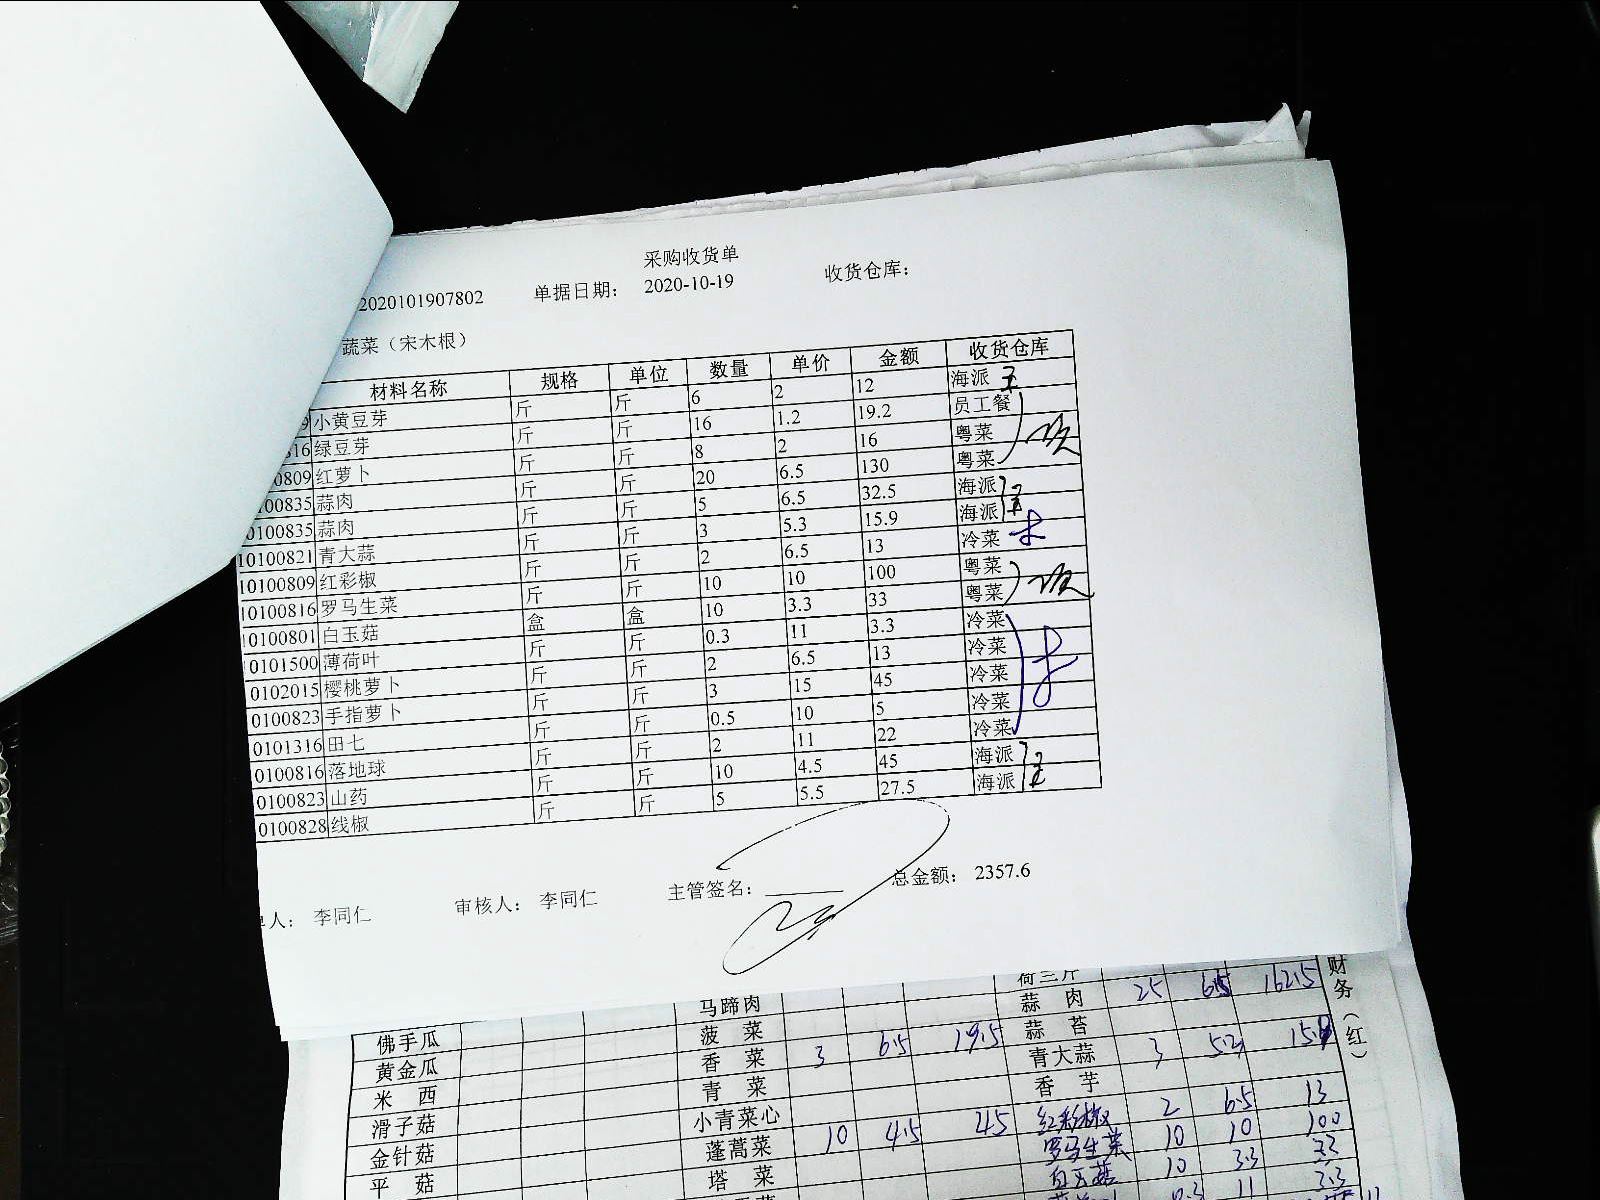 采购收货单
2020101907802 单据日期： 2020-10-19 收货仓库：
蔬菜（宋木根）
材料名称 规格 单位 数量 单价 金额 收货仓库
9 小黄豆芽 斤 斤 6 2 12 海派 王
816 绿豆芽 斤 斤 16 1.2 19.2 员工餐
0809 红萝卜 斤 斤 8 2 16 粤菜
100835 蒜肉 斤 斤 20 6.5 130 粤菜
0100835 蒜肉 斤 斤 5 6.5 32.5 海派
10100821 青大蒜 斤 斤 3 5.3 15.9 海派
10100809 红彩椒 斤 斤 2 6.5 13 冷菜
10100816 罗马生菜 斤 斤 10 10 100 粤菜
10100801 白玉菇 盒 盒 10 3.3 33 粤菜
0101500 薄荷叶 斤 斤 0.3 11 3.3 冷菜
0102015 樱桃萝卜 斤 斤 2 6.5 13 冷菜
0100823 手指萝卜 斤 斤 3 15 45 冷菜
0101316 田七 斤 斤 0.5 10 5 冷菜
0100816 落地球 斤 斤 2 11 22 冷菜
0100823 山药 斤 斤 10 4.5 45 海派
0100828 线椒 斤 斤 5 5.5 27.5 海派
人： 李同仁 审核人： 李同仁 主管签名： 总金额： 2357.6
马蹄肉 荷兰芹
佛手瓜 菠菜 蒜肉 25 6.5 162.5
黄金瓜 香菜 3 6.5 19.5 蒜苔
米西 青菜 青大蒜 3 5.3 15.9
滑子菇 小青菜心 香芋
金针菇 蓬蒿菜 10 4.5 45 红彩椒 2 6.5 13
平菇 塔菜 罗马生菜 10 10 100
白玉菇 10 3.3 33
0.3 11 3.3
财务（红）